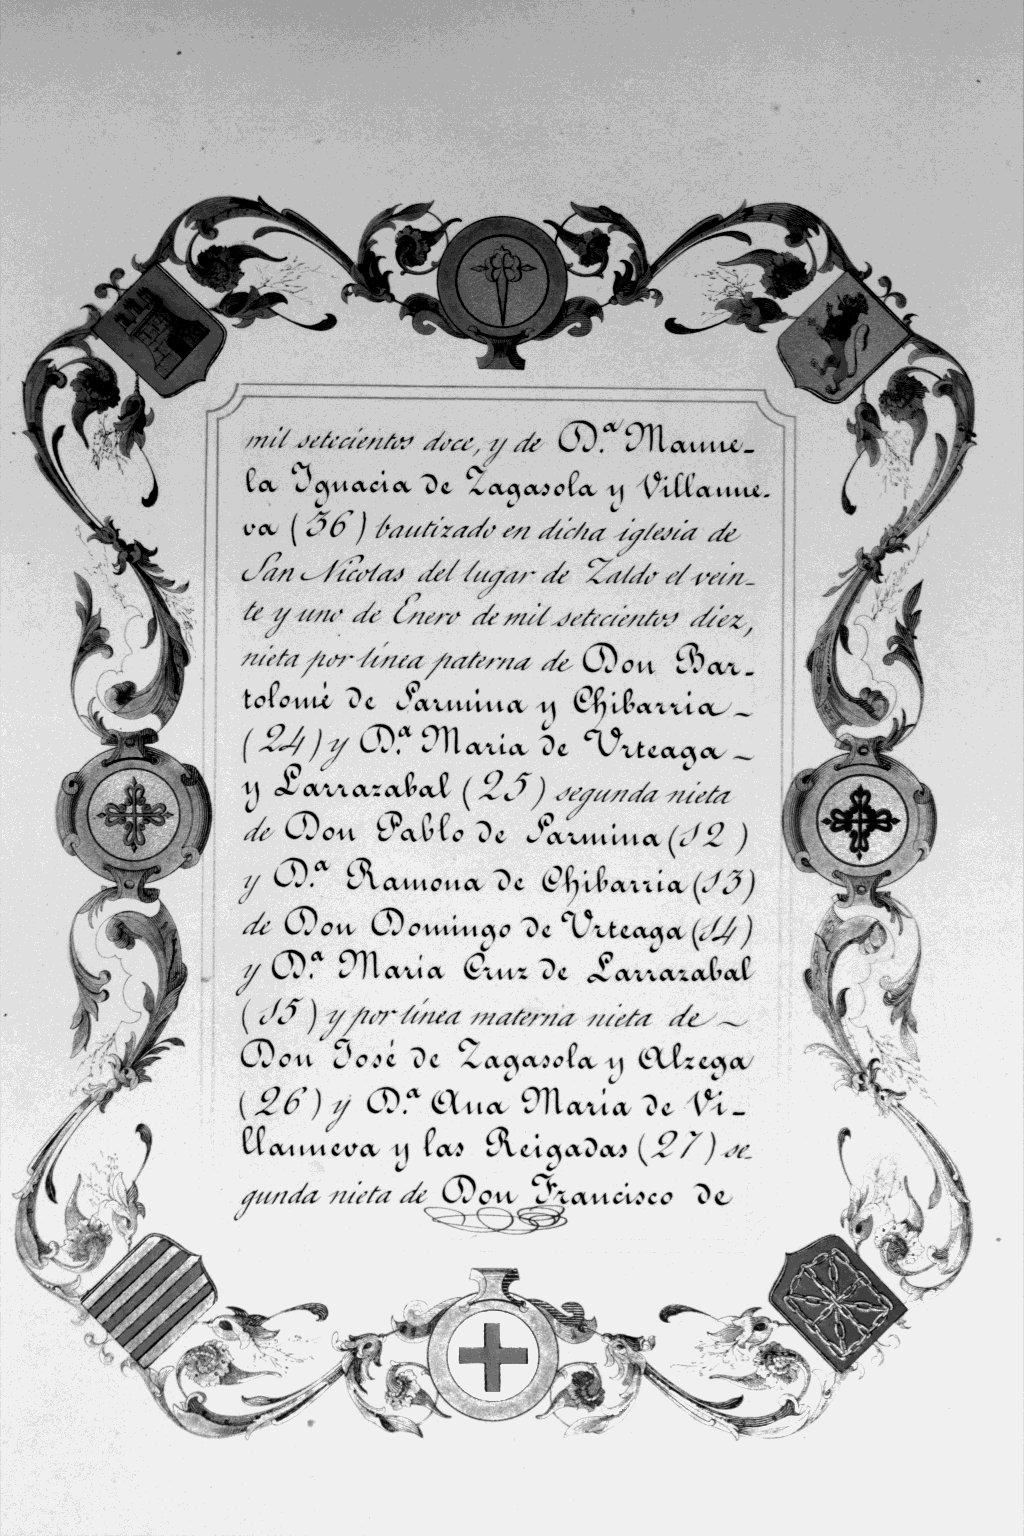 mil setecientos doce, y de D.ª Manue-
la Ignacia de Zagasola y Villanue-
va (36) bautizado en dicha iglesia de
San Nicolas del lugar de Zaldo el vein-
te y uno de Enero de mil setecientos diez,
nieta por línea paterna de Don Bar-
tolomé de Parmina y Chibarria -
(24) y D.ª Maria de Urteaga -
y Larrazabal (25) segunda nieta
de Don Pablo de Parmina (12)
y D.ª Ramona de Chibarria (13)
de Don Domingo de Urteaga (14)
y D.ª Maria Cruz de Larrazabal
(15) y por línea materna nieta de -
Don José de Zagasola y Alzega
(26) y D.ª Ana Maria de Vi-
llanueva y las Reigadas (27) se-
gunda nieta de Don Francisco de